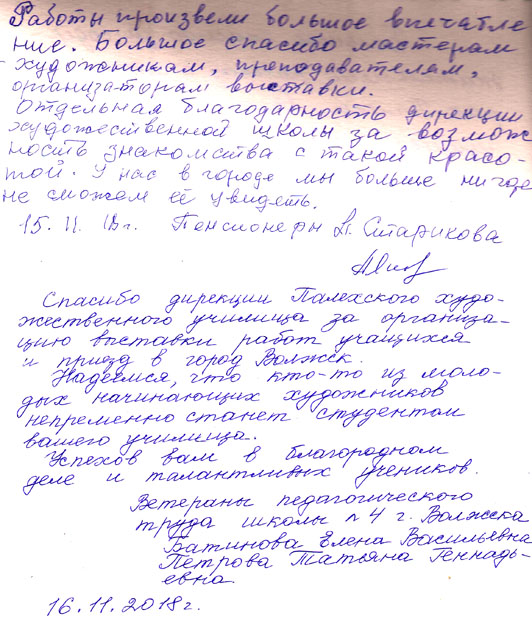 Работы произвели большое впечатле
ние. Большое спасибо мастерам
художникам, преподавателям,
организаторам выставки.
Отдельная благодарность дирекции
художественной школы за возмож
ность знакомства с такой красо-
той. У нас в городе мы больше нигде
не сможем её увидеть.
15.11.18г. Пенсионеры Старикова
Спасибо дирекции Палехского худо-
жественного училища за организа-
цию выставки работ учащихся
и приезд в город Волжск.
Надеемся, что кто-то из моло-
дых начинающих художников
непременно станет студентом
вашего училища.
Успехов вам в благородном
деле и талантливых учеников.
Ветераны педагогического
труда школы №4 г. Волжска
Батинова Елена Васильевна
Петрова Татьяна Геннадь-
евна.
16.11.2018г.